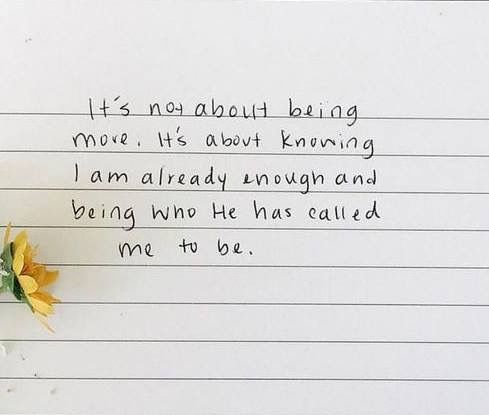 It's not about being
more. It's about knowing
I am already enough and
being who He has called
me to be.